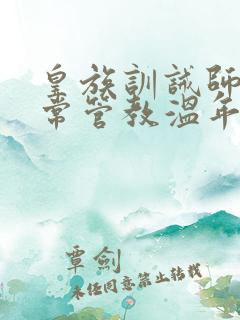 皇族訓誡師
常管教溫年
覃劍
未经同意禁止转载